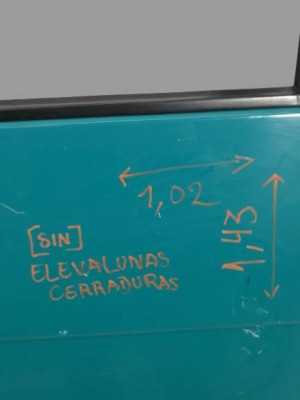 1,02
1,43
[SIN]
ELEVALUNAS
CERRADURAS